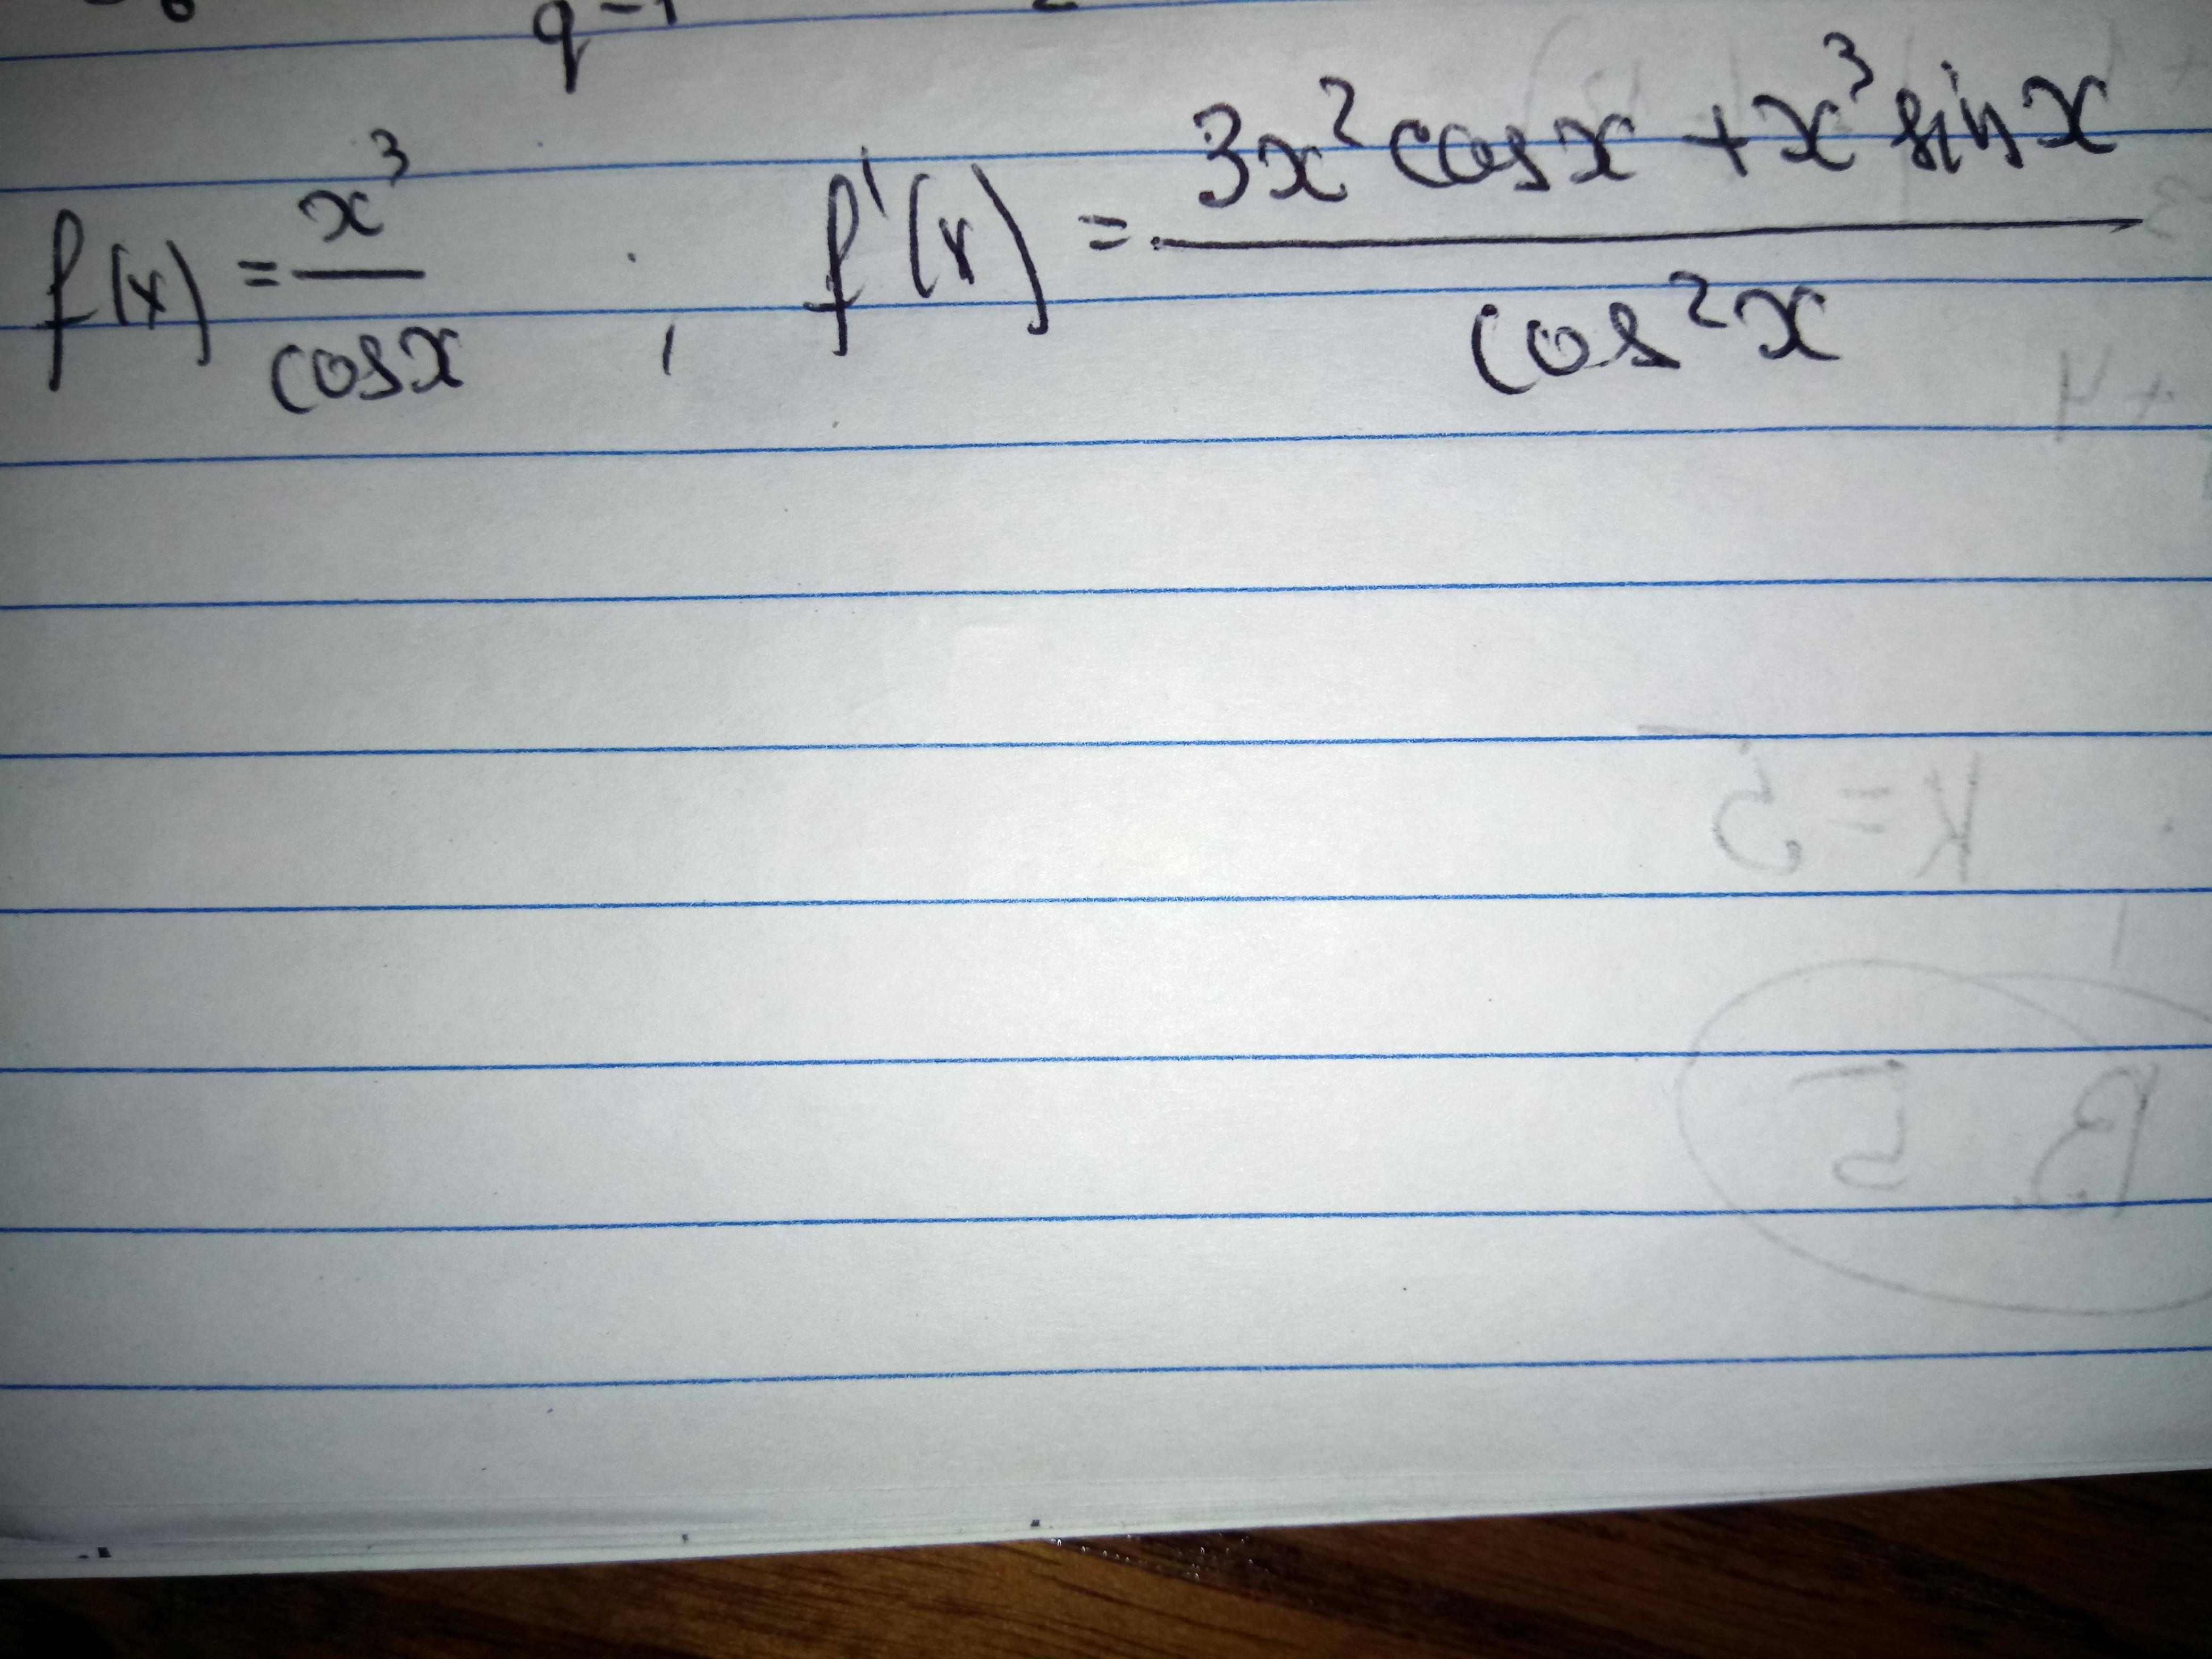 q-1
f(x) = x³/cosx , f'(x) = (3x² cosx + x³ sinx)/cos²x
+4
K=5
B 15